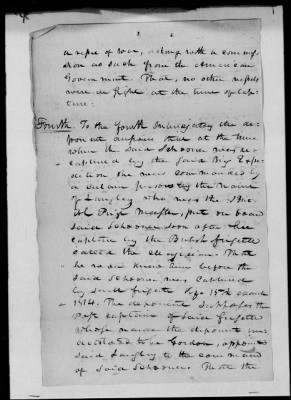 a repu of war, acting with a commis-
sion as such from the American
Government. That, no other vessels
were in sight at the time of cap-
ture.
Fourth To the fourth Interrogatory the de-
ponent answers that at the time
when the said Schooner was re-
captured by the said Brig Expe-
dition she was commanded by
a certain person by the name
of Langley who was the
Prize Master, put on board
said Schooner soon after her
capture by the British frigate
called the That
he never knew him before the
said Schooner was captured
by said frigate
1814. The deponent supposes the
captain of said frigate
whose name the deponent un-
derstood to be Gordon, appointed
said Langley to the command
of said Schooner. That the